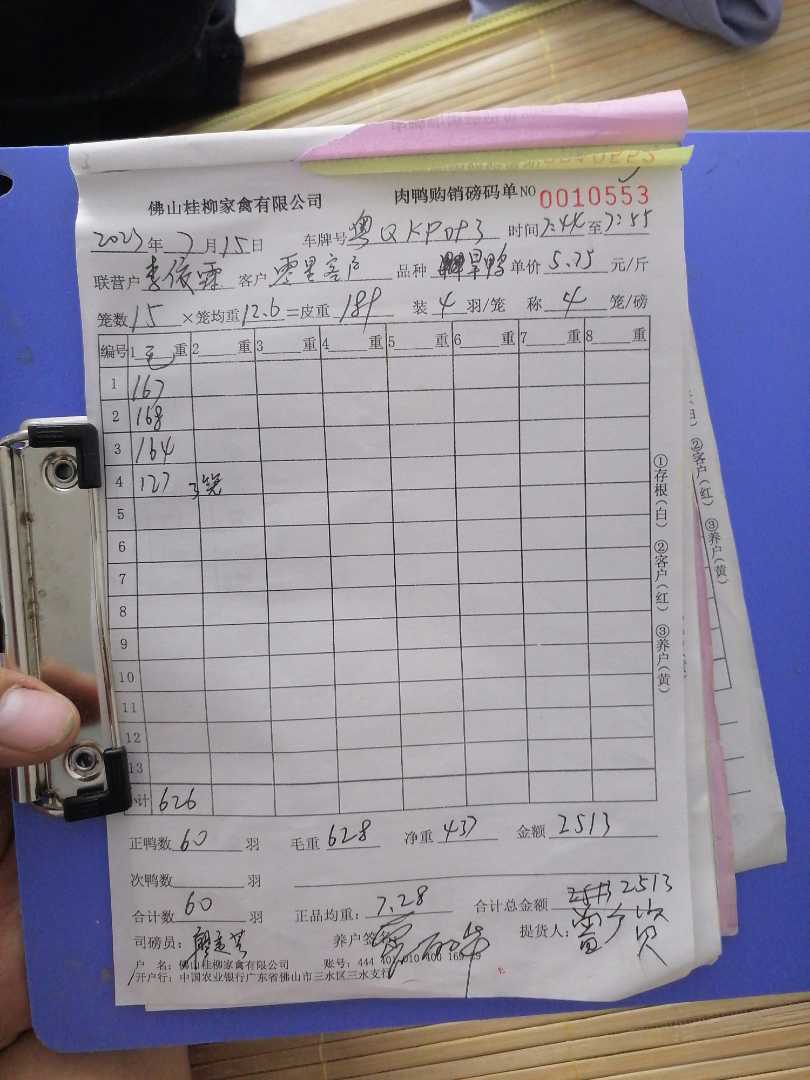 佛山桂柳家禽有限公司 肉鸭购销磅码单 NO 0010553
2023年7月15日 车牌号粤Q 时间7:44至7:55
联营户李依霖 客户零星客户 品种旱鸭 单价5.75元/斤
笼数15×笼均重12.6=皮重189 装4羽/笼 称4笼/磅
编号 1毛重 2重 3重 4重 5重 6重 7重 8重
1 167
2 168
3 164
4 127 3笼
5
6
7
8
9
10
11
12
13
小计 626
①存根(白) ②客户(红) ③养户(黄)
②客户(红) ③养户(黄)
正鸭数60羽 毛重628 净重437 金额2513
次鸭数 羽
合计数60羽 正品均重:7.28 合计总金额2513
司磅员: 养户签名 提货人:
户 名:佛山桂柳家禽有限公司 账号:444
开户行:中国农业银行广东省佛山市三水区三水支行